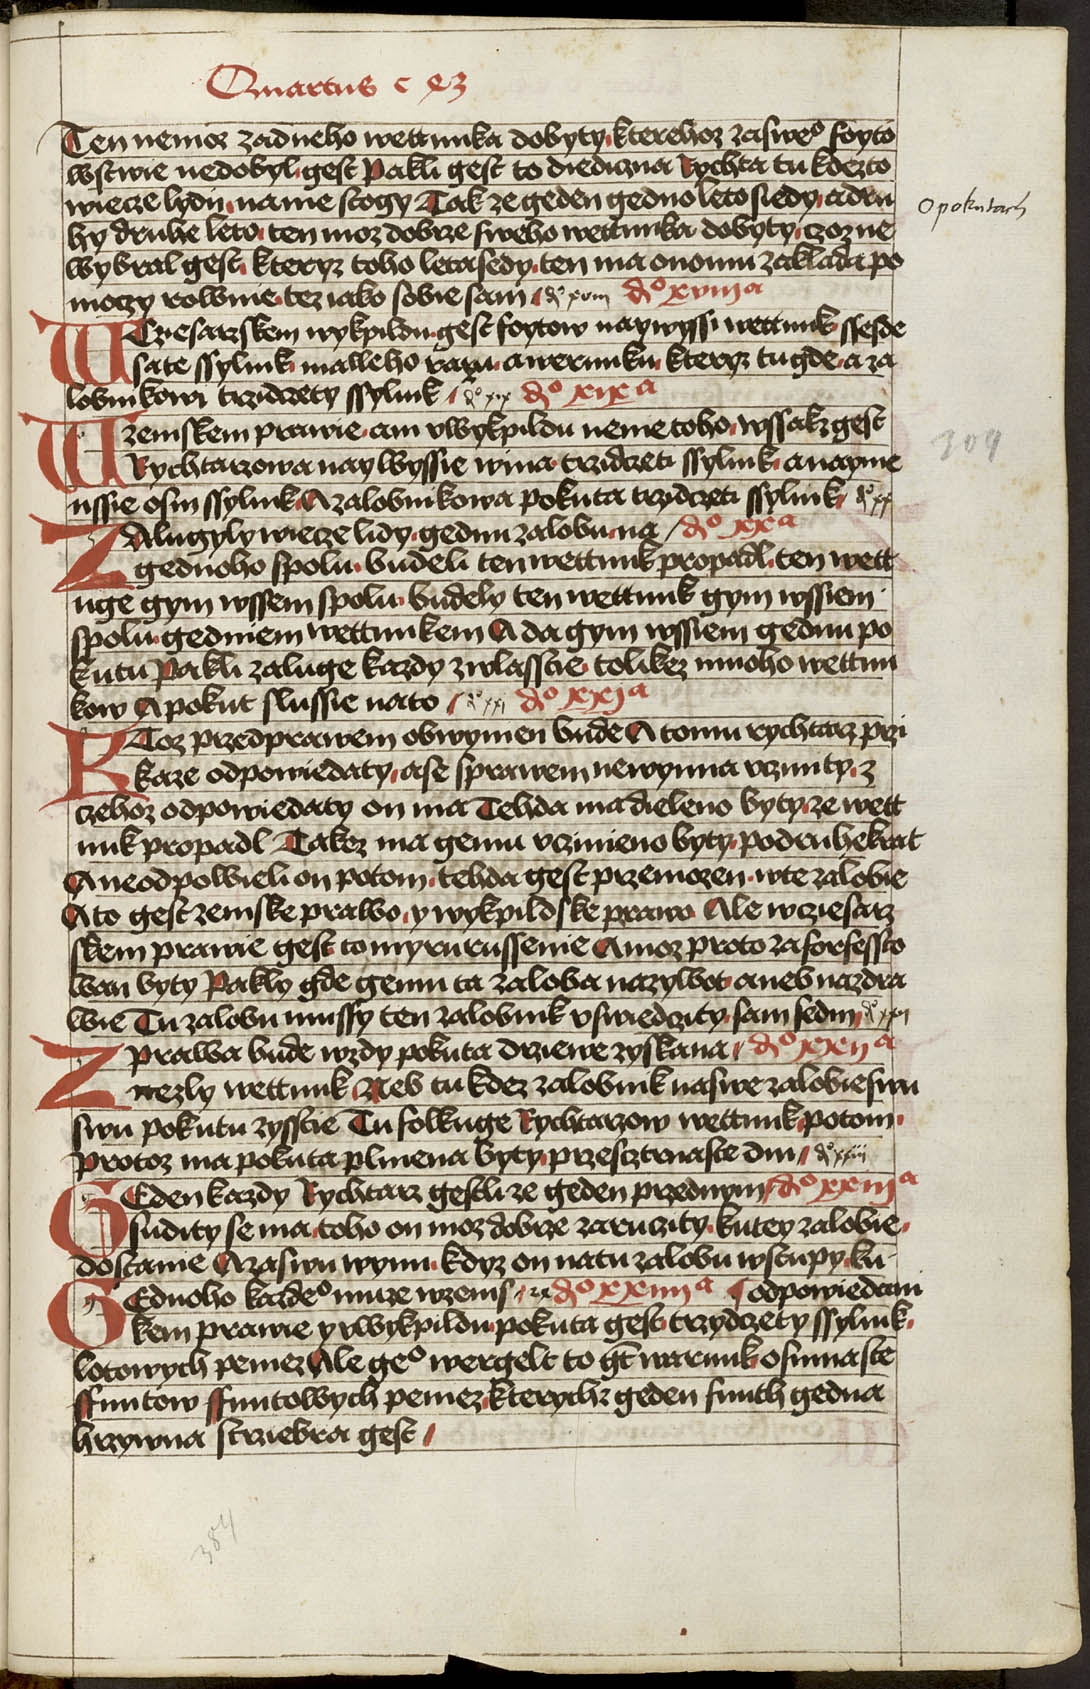 Quartus c
Ten nemoz zadneho wettunka dobyty kterehoz zasweº foyto
wstwie nedobyl gest Pakli gest to diediczna Rychta tu kdezto
wiecze lydii namie stogy Tak ze geden gedno leto siedy a dru
hy druhe leto ten moz dobrze sweho wettunka dobyty czoz ne
wybral gest kteryz toho leta sedy ten ma onomu zaklada po
moczy rownie tez iako sobie sam dº xviii dº xviijª
W Cziesarzskem wykpildu gest foytow naywyssi wettunk ssesde
sate ssylink malleho razu a werunku kteryz tu gde a za
lobnikowi trzidczety ssylink dº xix dº xixª
W zemskem prawie am vwykpildu neme toho wssak gest
Rychtarzowa naywyssie wina trzidczeti ssylink a nayme
nssie osm ssylink A zalobnikowa pokuta trzidczeti ssylink dº xx
ZAlugyly wiecze lidy gednu zalobu na dº xxª
gednoho spolu budeli ten wettunk propadl ten wett
uge gym wssem spolu budely ten wettunk gym wssiem
spolu gedniem wettunkem A da gym wssiem gednu po
kutu Pakli zaluge kazdy zwlasscie tolikez mnoho wettun
kow A pokut slussie nato dº xxi dº xxjª
KToz przedprawem obwynien bude A tomu rychtarz przi
kaze odpowiedaty a se sprawem newynna vcziniti z
czehoz odpowiedaty on ma Tehda ma dieleno byty ze wett
unk propadl Takez ma gemu vczinieno byty podruhekrat
A neodpowieli on potom tehda gest przemozen wte zalobie
A to gest zemske prawo y wykpildske prawo Ale wcziesarz
skem prawie gest to myru russenie A moz proto za forfessto
wan byty Pakly gde gemu ta zaloba nazywot aneb nazdra
wie Tu zalobu mussy ten zalobnik vswiedczity sam sedm dº xxii
Z prawa bude wzdy pokuta drziewe zyskana dº xxijª
nezly wettunk Neb tu kdez zalobnik naswe zalobie swu
swu pokutu zysstie Tu folkuge Rychtarzow wettunk potom
protoz ma pokuta plniena byty przescztrnaste dni dº xxiii
GEden kazdy Rychtarz gestli ze geden przednym dº xxiijª
sudity se ma toho on moz dobrze zaruczity kutey zalobie
dostanie A zaswu wynu kdyz on natu zalobu wstupy ku
GEdnoho kazdeº muze wzems dº xxiiijª ¶ odpowiedani
kem prawie y vwykpildu pokuta gest trzydczety ssylink
lotowych peniez Ale geº wergelt to gest warunk osmnaste
ffuntow ffuntowych peniez kterychz geden funth gedna
hrzywna strziebra gest
O pokutach
309
384